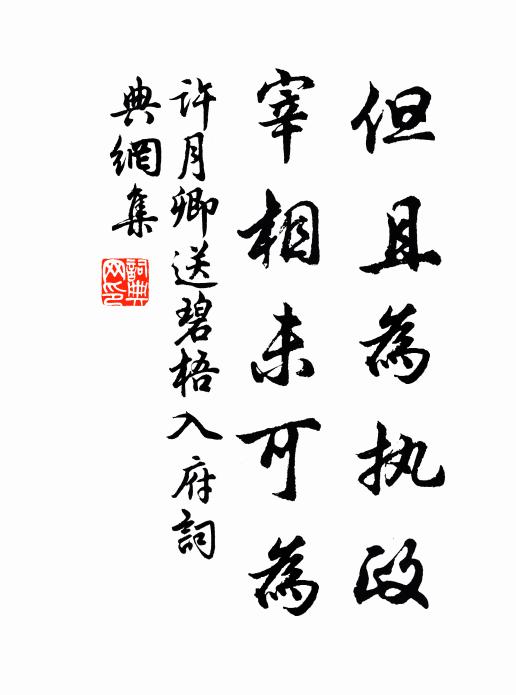 但且為执政
宰相未可為
许月卿送碧梧入府詞
典網集
詞典網印